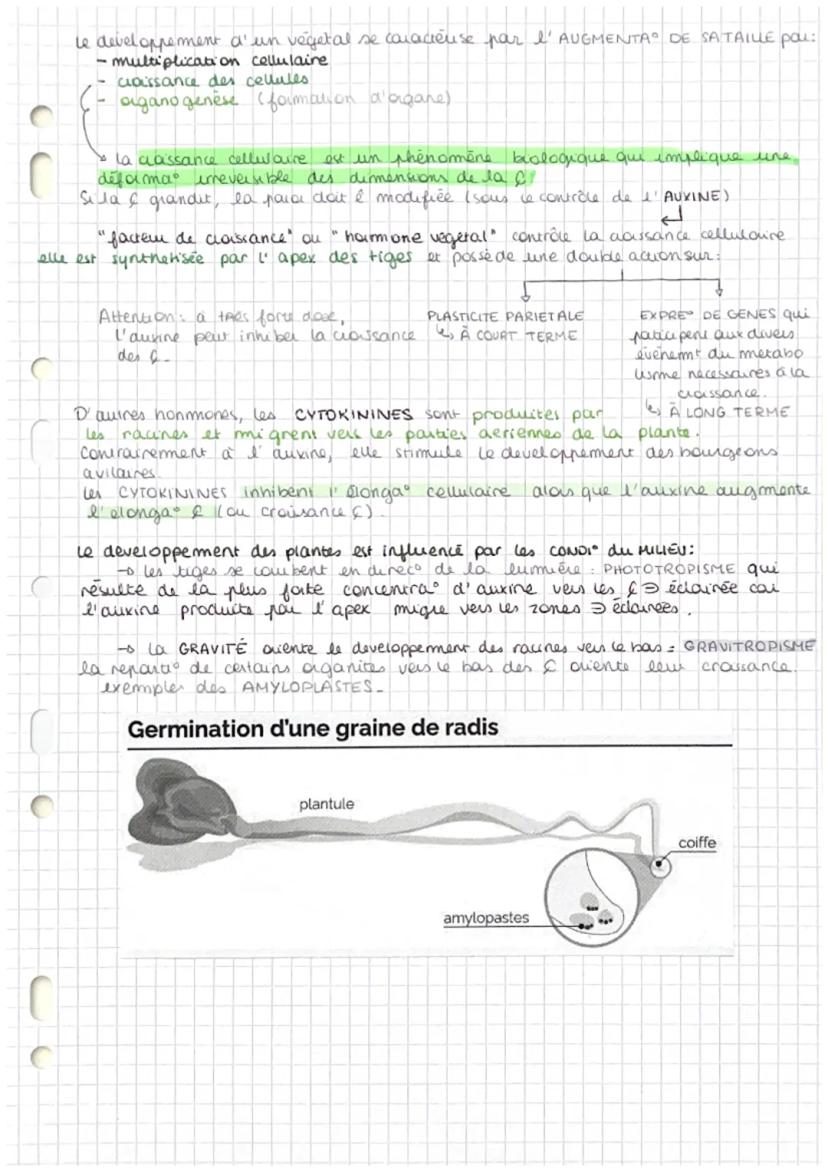 Le développement d'un végetal se caractérise par l'AUGMENTA° DE SA TAILLE par:
- multiplication cellulaire
- croissance des cellules
- organogenèse (formation d'organe)
la croissance cellulaire est un phénomène biologique qui implique une
déforma° irreversible des dimensions de la ₵
Si la ₵ grandit, la paroi doit ê modifiée (sous le contrôle de l'AUXINE)
"facteur de croissance" ou "hormone vegetal" contrôle la croissance cellulaire
elle est synthetisée par l'apex des tiges et possède une double action sur:
Attention: à très forte dose,
l'auxine peut inhiber la croissance
des ₵.
PLASTICITE PARIETALE
↳ À COURT TERME
EXPRE° DE GENES qui
participent aux divers
évènemt du metabo
lisme necessaires à la
croissance.
↳ À LONG TERME
D'autres honmones, les CYTOKININES sont produites par
les racines et migrent vers les parties aeriennes de la plante.
Contrairement à l'auxine, elle stimule le developpement des bourgeons
axilaires.
Les CYTOKININES inhibent l'élonga° cellulaire alors que l'auxine augmente
l'elonga° ₵ (ou croissance ₵).
Le developpement des plantes est influencé par les CONDI° du MILIEU:
→ les tiges se courbent en direc° de la lumière : PHOTOTROPISME qui
résulte de la plus forte concentra° d'auxine vers les ₵ ∋ éclairée car
l'auxine produite par l'apex migre vers les zones ∋ éclairées.
→ La GRAVITÉ oriente le developpement des racines vers le bas = GRAVITROPISME
la reparti° de certains organites vers le bas des ₵ oriente leur croissance.
exemples des AMYLOPLASTES.
Germination d'une graine de radis
plantule
coiffe
amylopastes